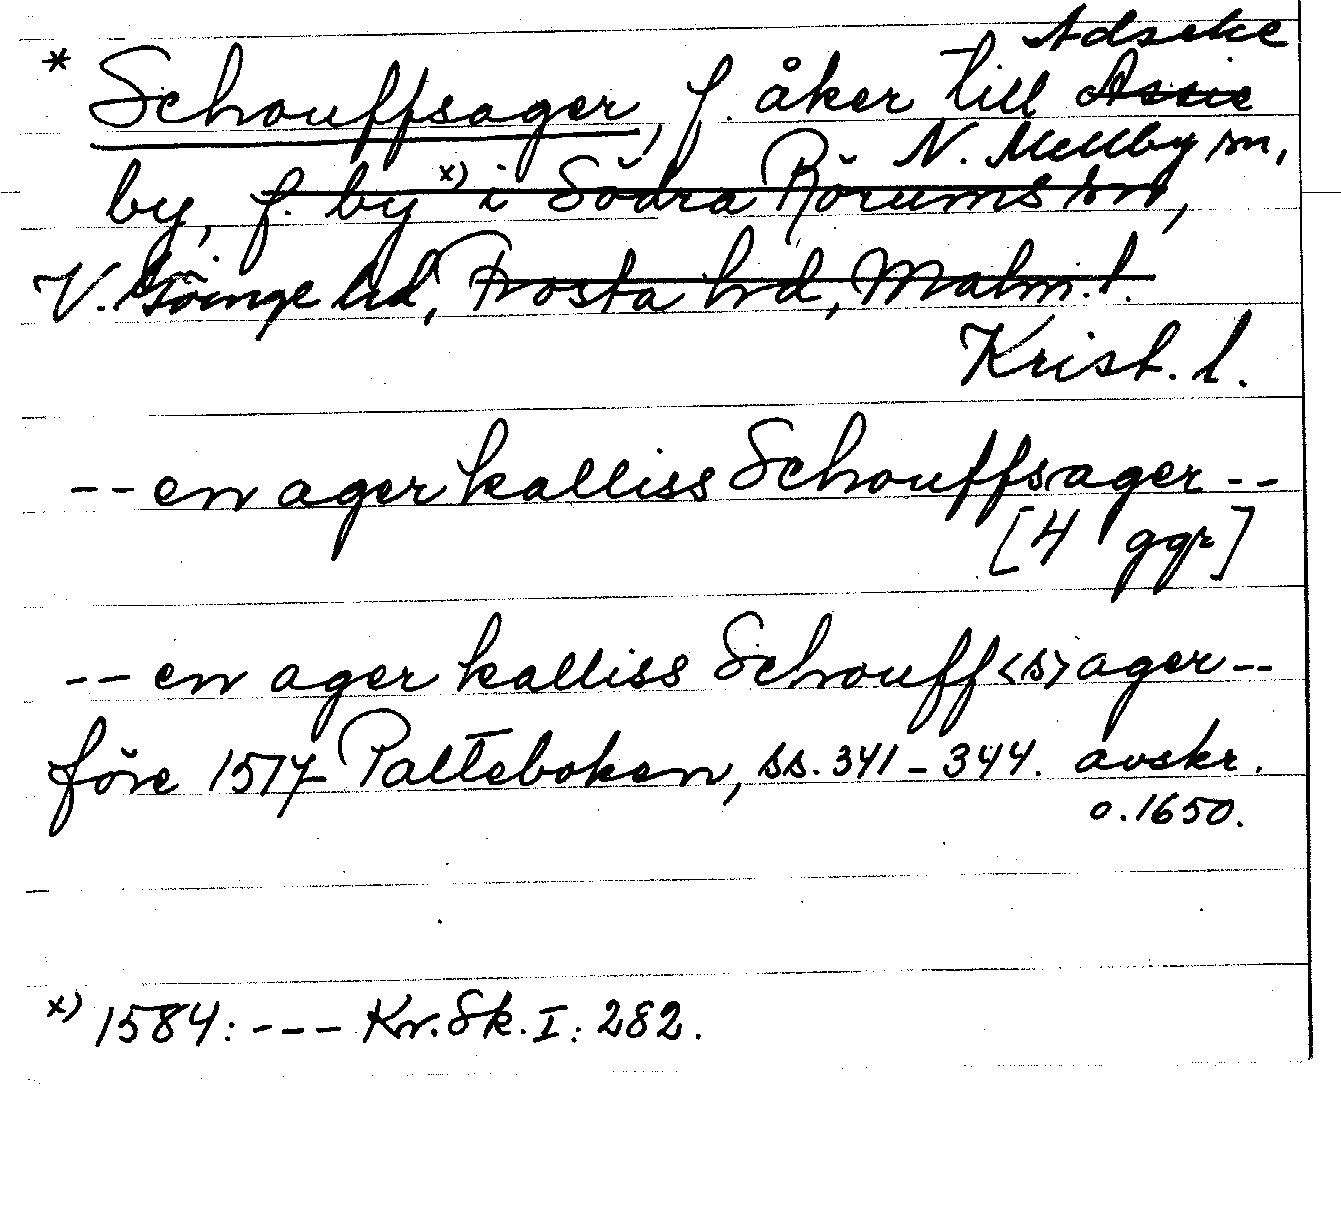 Adseke
* Schouffsager, f. åker till Assie
N. Mellby sn,
by, f. by x) i Södra Rörums sn,
V. Göinge hd, Frosta hrd, Malm. l.
Krist. l.
-- en ager kalliss Schouffsager --
[4 ggr]
-- en ager kalliss Schouff<s>ager --
före 1517 Palteboken, ss. 341-344. avskr.
o. 1650.
x) 1584: --- Kr. Sk. I: 282.